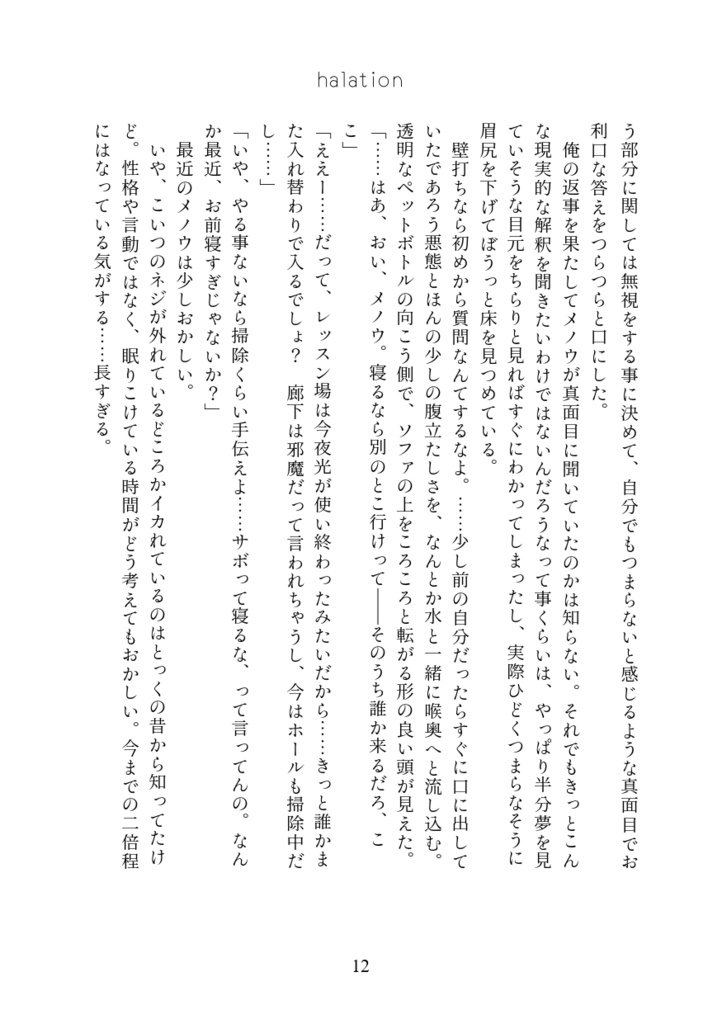 halation
う部分に関しては無視をする事に決めて、自分でもつまらないと感じるような真面目でお
利口な答えをつらつらと口にした。
　俺の返事を果たしてメノウが真面目に聞いていたのかは知らない。それでもきっとこん
な現実的な解釈を聞きたいわけではないんだろうなって事くらいは、やっぱり半分夢を見
ていそうな目元をちらりと見ればすぐにわかってしまったし、実際ひどくつまらなそうに
眉尻を下げてぼうっと床を見つめている。
　壁打ちなら初めから質問なんてするなよ。……少し前の自分だったらすぐに口に出して
いたであろう悪態とほんの少しの腹立たしさを、なんとか水と一緒に喉奥へと流し込む。
透明なペットボトルの向こう側で、ソファの上をころころと転がる形の良い頭が見えた。
「……はあ、おい、メノウ。寝るなら別のとこ行けって――そのうち誰か来るだろ、こ
こ」
「ええー……だって、レッスン場は今夜光が使い終わったみたいだから……きっと誰かま
た入れ替わりで入るでしょ？　廊下は邪魔だって言われちゃうし、今はホールも掃除中だ
し……」
「いや、やる事ないなら掃除くらい手伝えよ……サボって寝るな、って言ってんの。なん
か最近、お前寝すぎじゃないか？」
　最近のメノウは少しおかしい。
　いや、こいつのネジが外れているどころかイカれているのはとっくの昔から知ってたけ
ど。性格や言動ではなく、眠りこけている時間がどう考えてもおかしい。今までの二倍程
にはなっている気がする……長すぎる。
12